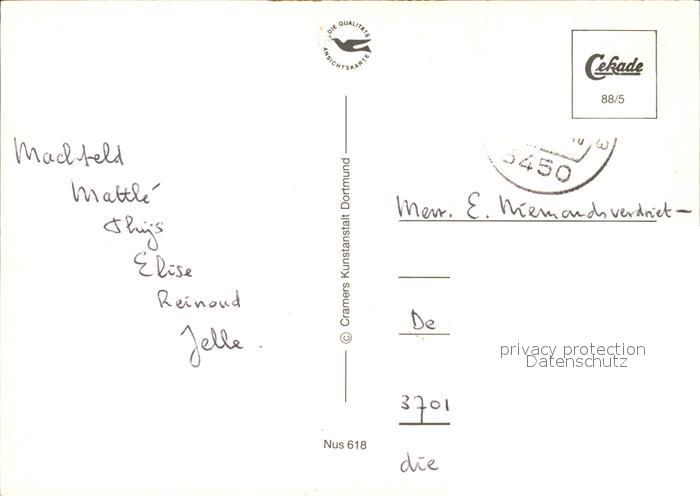 DIE QUALITÄTS
ANSICHTSKARTE
Cekade
88/5
5450
Machteld
Mattlé
Thijs
Elise
Reinoud
Jelle.
© Cramers Kunstanstalt Dortmund
Nus 618
Mevr. E. Niemandsverdriet-
De
3701
die
privacy protection
Datenschutz